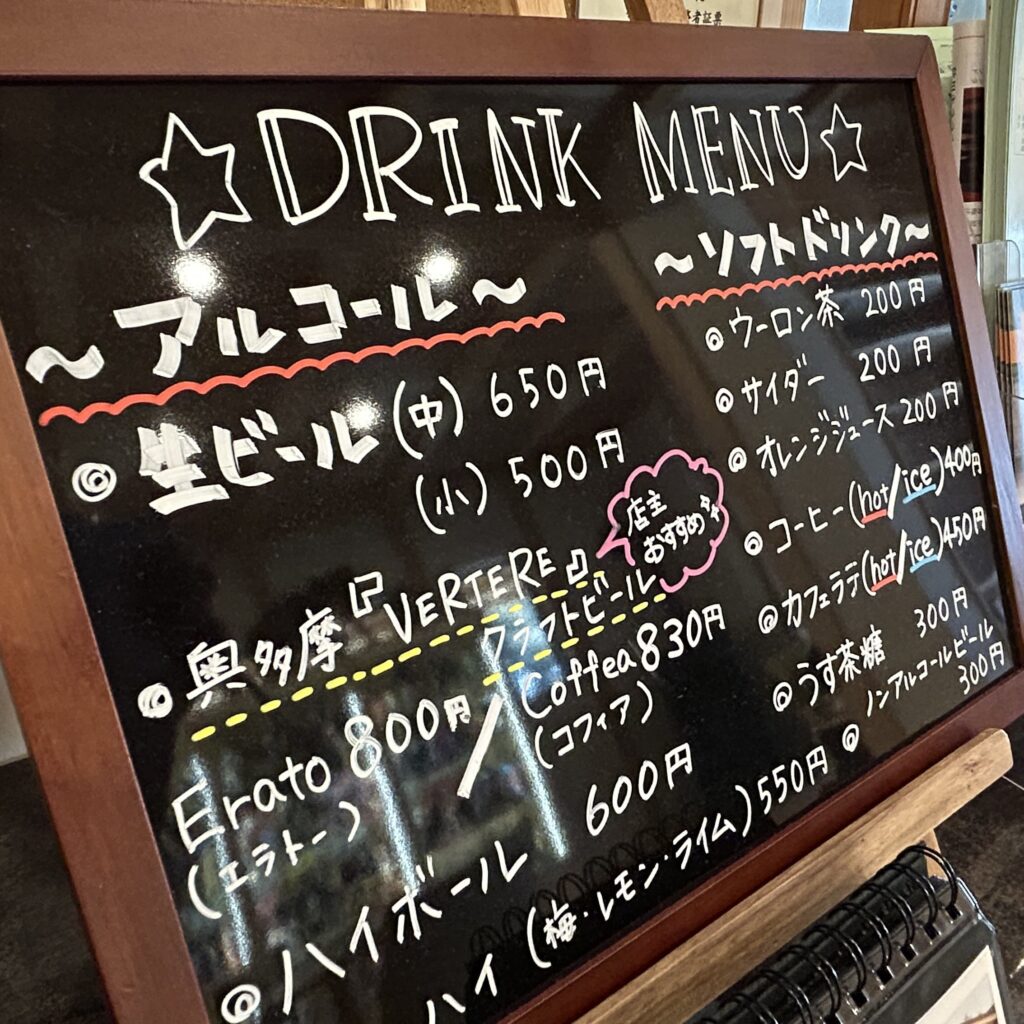 ☆DRINK MENU☆
~アルコール~
◎生ビール(中) 650円
(小) 500円
店主
おすすめ
◎奥多摩『VERTERE』
クラフトビール
Erato 800円 / Coffea 830円
(エラトー) (コフィア)
◎ハイボール 600円
ハイ(梅・レモン・ライム) 550円
~ソフトドリンク~
◎ウーロン茶 200円
◎サイダー 200円
◎オレンジジュース 200円
◎コーヒー(hot/ice) 400円
◎カフェラテ(hot/ice) 450円
◎うす茶糖 300円
◎ノンアルコールビール
300円
者証票